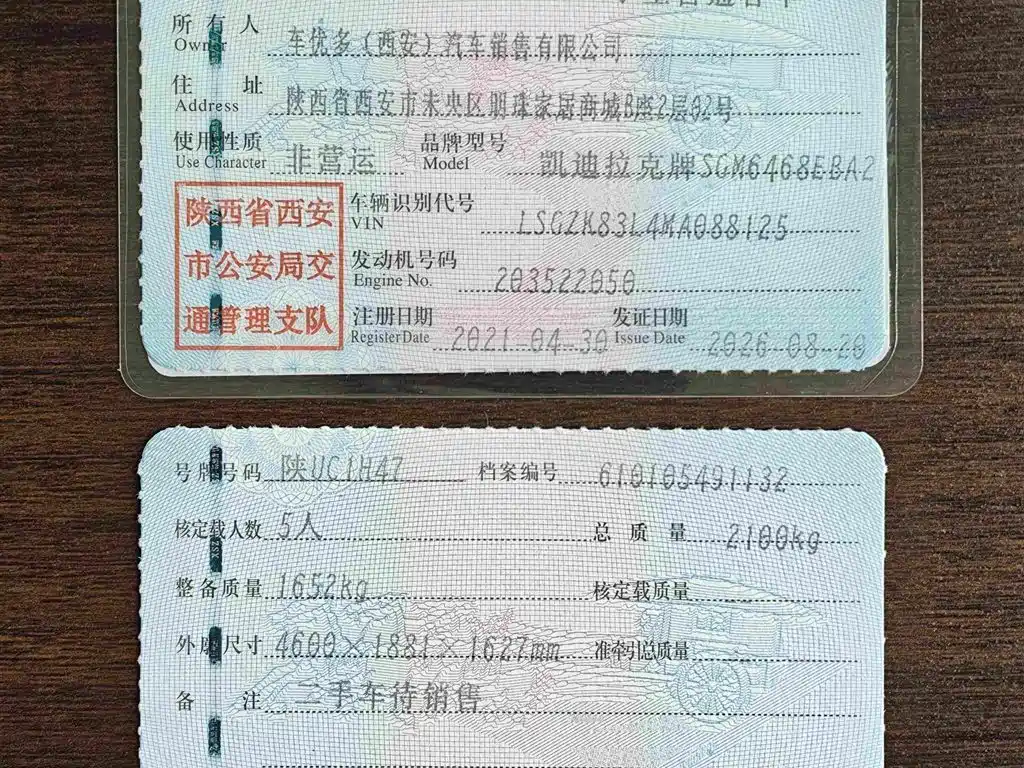 所有人 车优多(西安)汽车销售有限公司
Owner
住址 陕西省西安市未央区明珠家居商城B座2层02号
Address
使用性质 非营运 品牌型号 凯迪拉克牌SGM6468EBA2
Use Character Model
陕西省西安 车辆识别代号 LSGZK83L4MA088125
VIN
市公安局交 发动机号码 203522050
Engine No.
通管理支队 注册日期 2021-04-30 发证日期 2026-08-20
Register Date Issue Date
号牌号码 陕UC1H47 档案编号 610105491132
核定载人数 5人 总质量 2100kg
整备质量 1652kg 核定载质量
外廓尺寸 4600×1881×1627mm 准牵引总质量
备注 二手车待销售